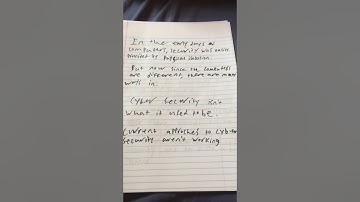 In the early days of
computers, security was easily
provided by physical isolation.
But now since the computers
are different, there are many
ways in.
Cyber security isn't
what it used to be.
Current approches to cyber
security aren't working